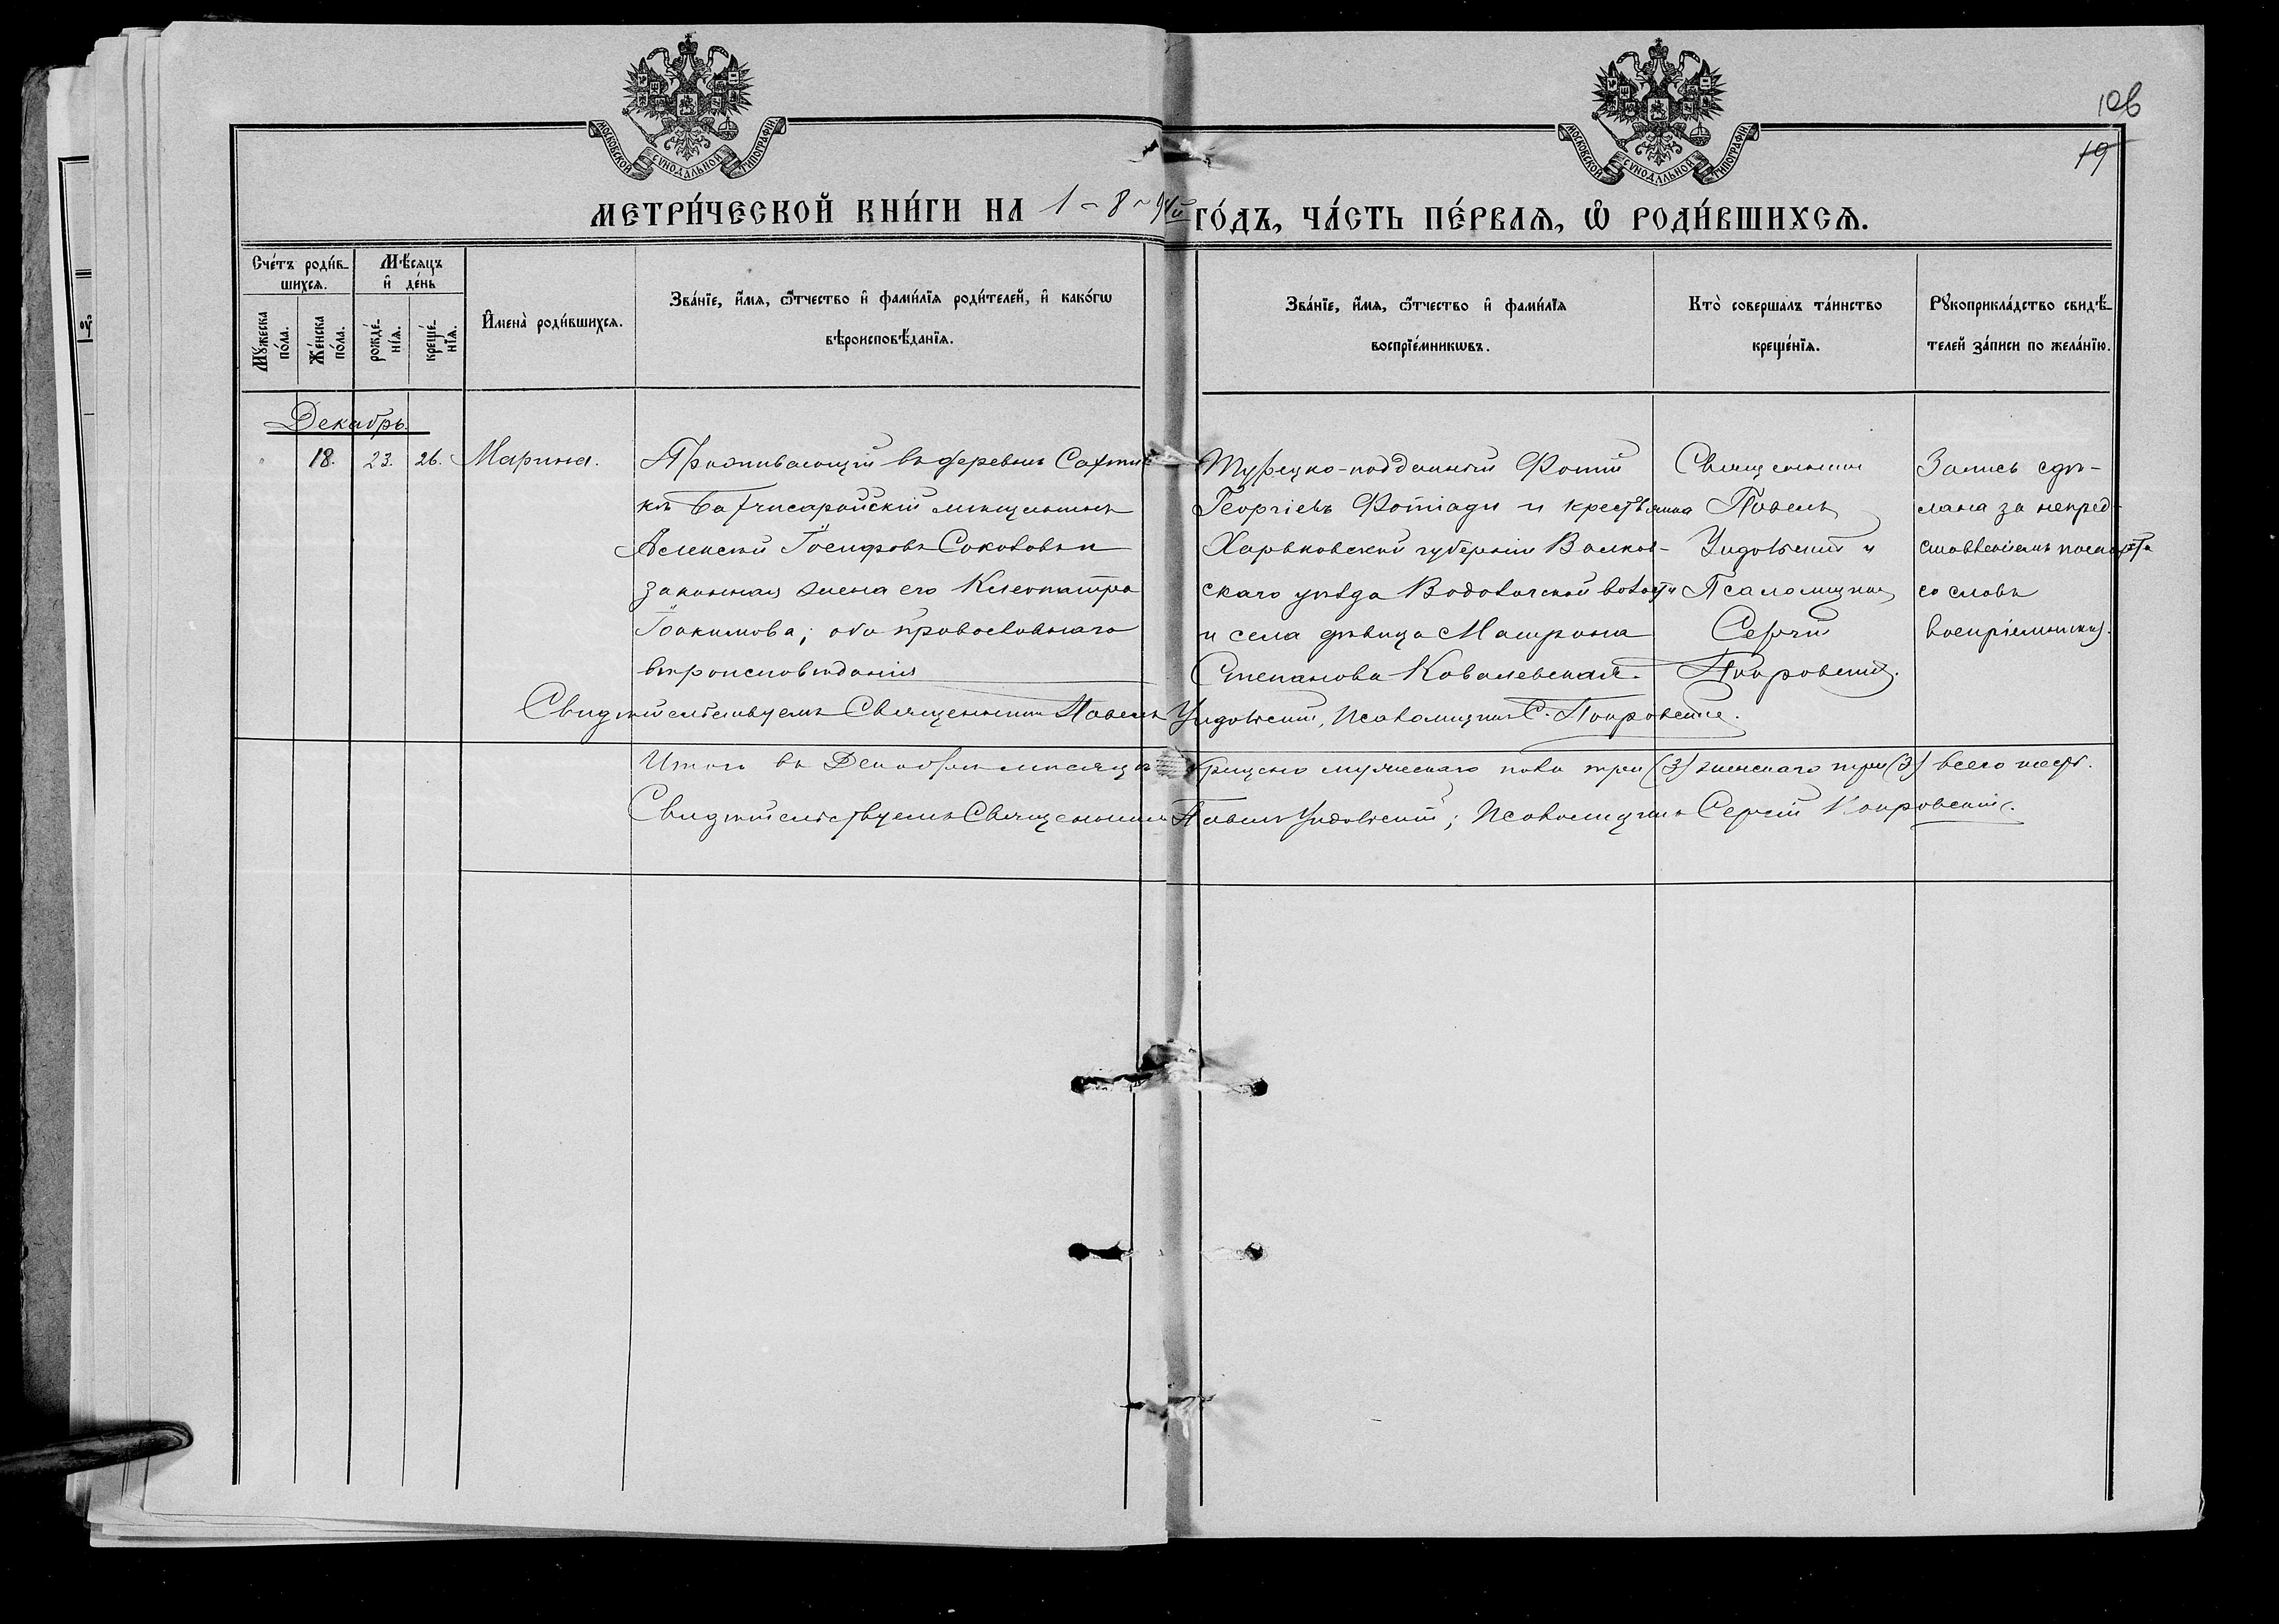 МОСКОВСКОЙ СѴНОДАЛЬНОЙ ТИПОГРАФІИ
МОСКОВСКОЙ СѴНОДАЛЬНОЙ ТИПОГРАФІИ
106
19
МЕТРИ́ЧЕСКОЙ КНИ́ГИ НА 1-8-94й ГО́ДЪ, ЧА́СТЬ ПЕ́РВАѦ, Ѡ҆ РОДИ́ВШИХСѦ.
Сче́тъ роди́в-
шихсѧ.
Мꙋ́жеска
по́ла.
Же́нска
по́ла.
Мѣ́сѧцъ
и҆ де́нь
рожде́-
нїѧ.
креще́-
нїѧ.
И҆мена̀ роди́вшихсѧ.
Зва́нїе, и҆́мѧ, ѻ҆́тчество и҆ фами́лїѧ роди́телей, и҆ како́гѡ
вѣроисповѣ́данїѧ.
Зва́нїе, и҆́мѧ, ѻ҆́тчество и҆ фами́лїѧ
воспрїе́мникѡвъ.
Кто̀ соверша́лъ та́инство
креще́нїѧ.
Рꙋкоприкла́дство свидѣ́-
телей за́писи по жела́нїю.
Декабрь.
18. 23. 26. Марина.
Проживающій въ деревнѣ Сахти-
къ Бахчисарайскій мѣщанинъ
Алексѣй Іосифовъ Соколовъ и
законная жена его Клеопатра
Іоакимова; оба православнаго
вѣроисповѣданія
Турецко-подданный Фотій
Георгіевъ Фотіади и крестьянка
Харьковской губерніи Валков-
скаго уѣзда Водолагской волости
и села дѣвица Матрона
Степанова Ковалевская.
Священникъ
Павелъ
Индовскій и
Псаломщикъ
Сергій
Покровскій.
Запись сдѣ-
лана за непред-
ставленіемъ паспорта
со словъ
воспріемника.
Свидѣтельствуемъ Священникъ Павелъ Индовскій, Псаломщикъ С. Покровскій.
Итого въ Декабрѣ мѣсяцѣ крещено мужескаго пола три (3) женскаго три (3) всего шесть.
Свидѣтельствуемъ Священникъ Павелъ Индовскій; Псаломщикъ Сергій Покровскій.